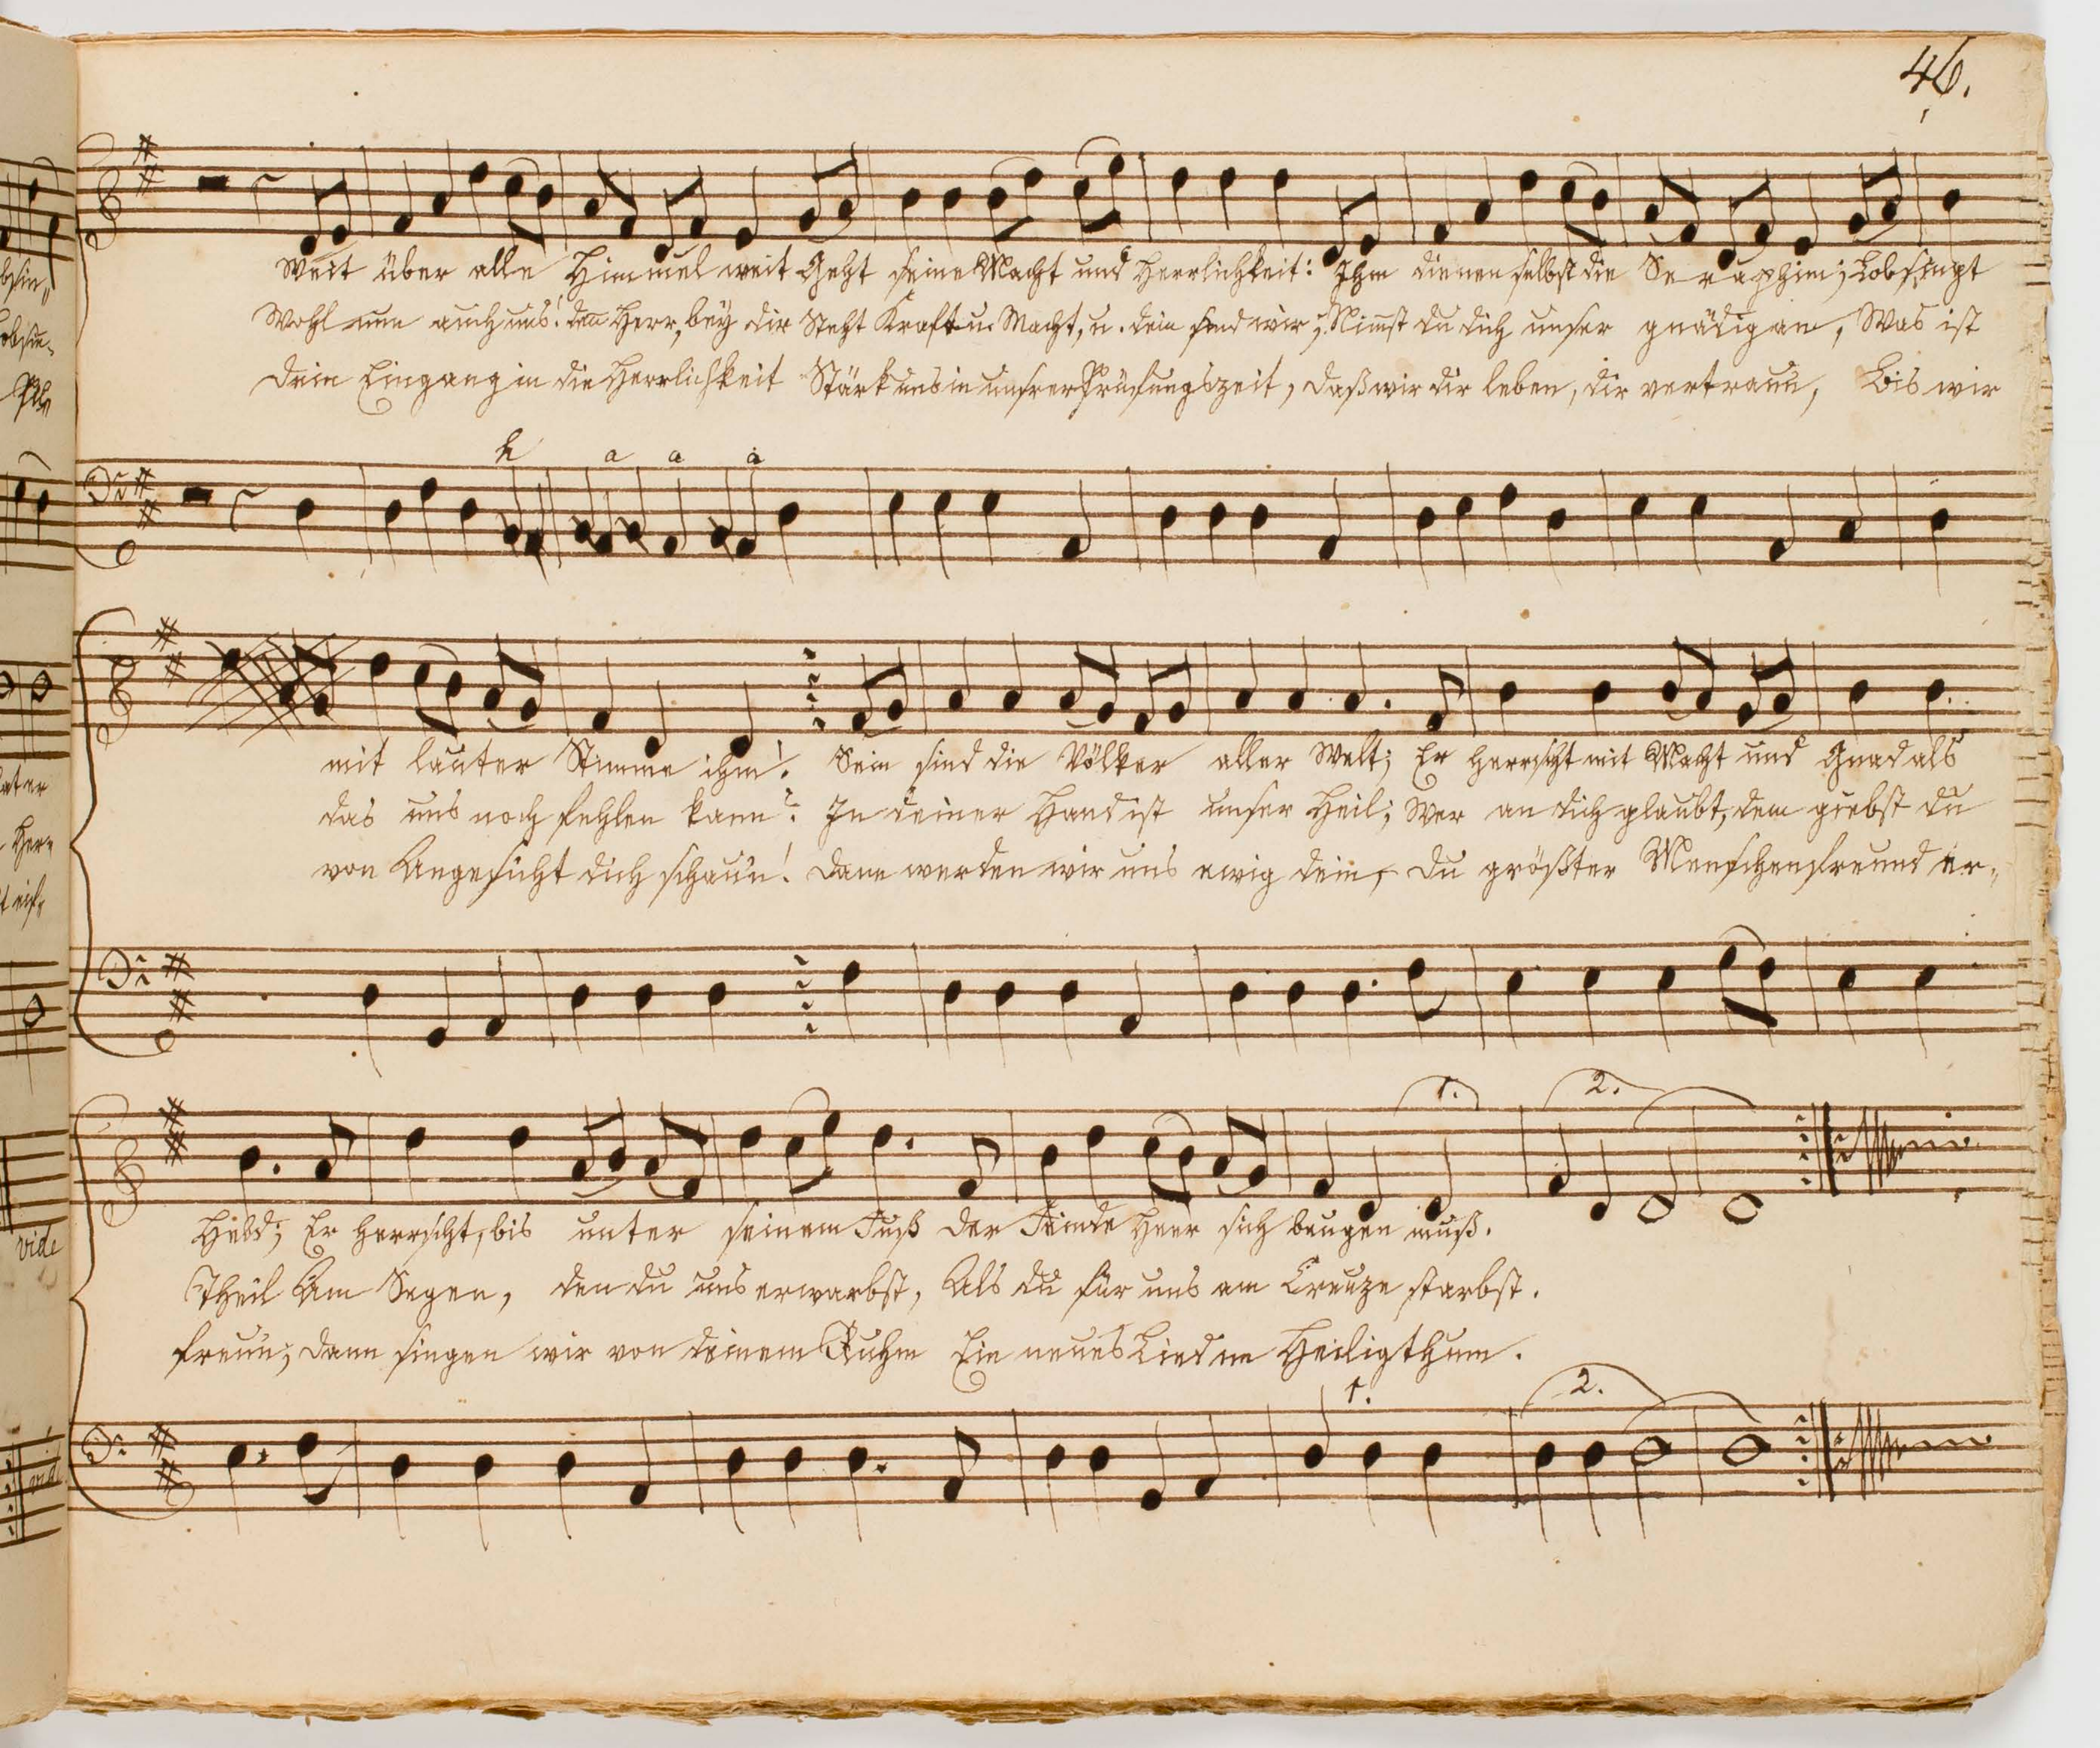 46.
Weit über alle Himmel weit Geht seine Macht und Herrlichkeit: Ihm dienen selbst die Seraphim; Lobsingt
Wohl nun auch uns! deñ Herr, bey dir Steht Kraft u. Macht, u. dein sind wir; Nimst du dich unser gnädig an, Was ist
Dein Eingang in die Herrlichkeit Stärk uns in unsrer Prüfungszeit, daß wir dir leben, dir vertraun, Bis wir
h a a a
mit lauter Stimme ihm! Sein sind die Völker aller Welt; Er herrscht mit Macht und Gnad als
das uns noch fehlen kann? In deiner Hand ist unser Heil; Wer an dich glaubt, dem giebst du
von Angesicht dich schaun! Dann werden wir uns ewig dein, Du größter Menschenfreund er-
1. 2.
Held; Er herrscht, bis unter seinem Fuß Der Feinde Heer sich beugen muß.
Theil Am Segen, den du uns erwarbst, Als du für uns am Creuze starbst.
freun; Dann singen wir von deinem Ruhm Ein neues Lied im Heiligthum.
1. 2.
vide